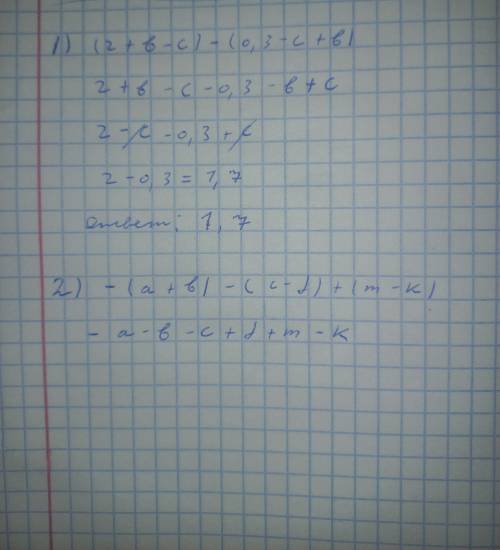 1) (2 + в - с) - (0,3 - с + в)
2 + в - с - 0,3 - в + с
2 - с - 0,3 + с
2 - 0,3 = 1,7
ответ: 1,7
2) - (а + в) - (с - d) + (m - к)
- а - в - с + d + m - к